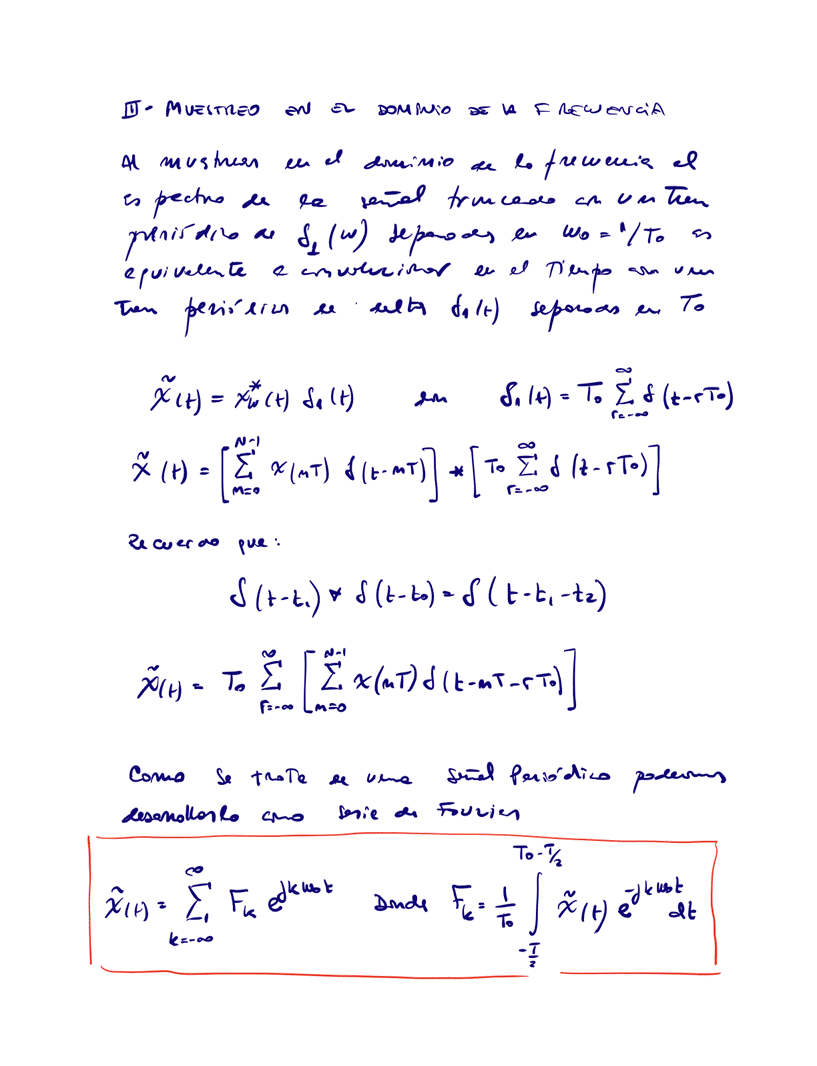 III- MUESTREO EN EL DOMINIO DE LA FRECUENCIA
Al mustrear en el dominio de la frecuencia el
espectro de la señal truncada con un tren
periódico de δ₁(ω) separadas en ω₀ = 1/T₀ es
equivalente a convolucionar en el Tiempo con un
tren periódico de delta δ₁(t) separadas en T₀
x̃(t) = x*w(t) δ₁(t) en δ₁(t) = T₀ Σ_{r=-∞}^{∞} δ(t-rT₀)
x̃(t) = [Σ_{m=0}^{N-1} x(mT) δ(t-mT)] * [T₀ Σ_{r=-∞}^{∞} δ(t-rT₀)]
Recuerdo que:
δ(t-t₁) * δ(t-t₀) = δ(t-t₁-t₂)
x̃(t) = T₀ Σ_{r=-∞}^{∞} [Σ_{m=0}^{N-1} x(mT) δ(t-mT-rT₀)]
Como se trata de una señal Periódica podemos
desarrollarla como serie de Fourier
x̃(t) = Σ_{k=-∞}^{∞} F_k e^{jkω₀t} Donde F_k = 1/T₀ ∫_{-T/2}^{T₀-T/2} x̃(t) e^{-jkω₀t} dt